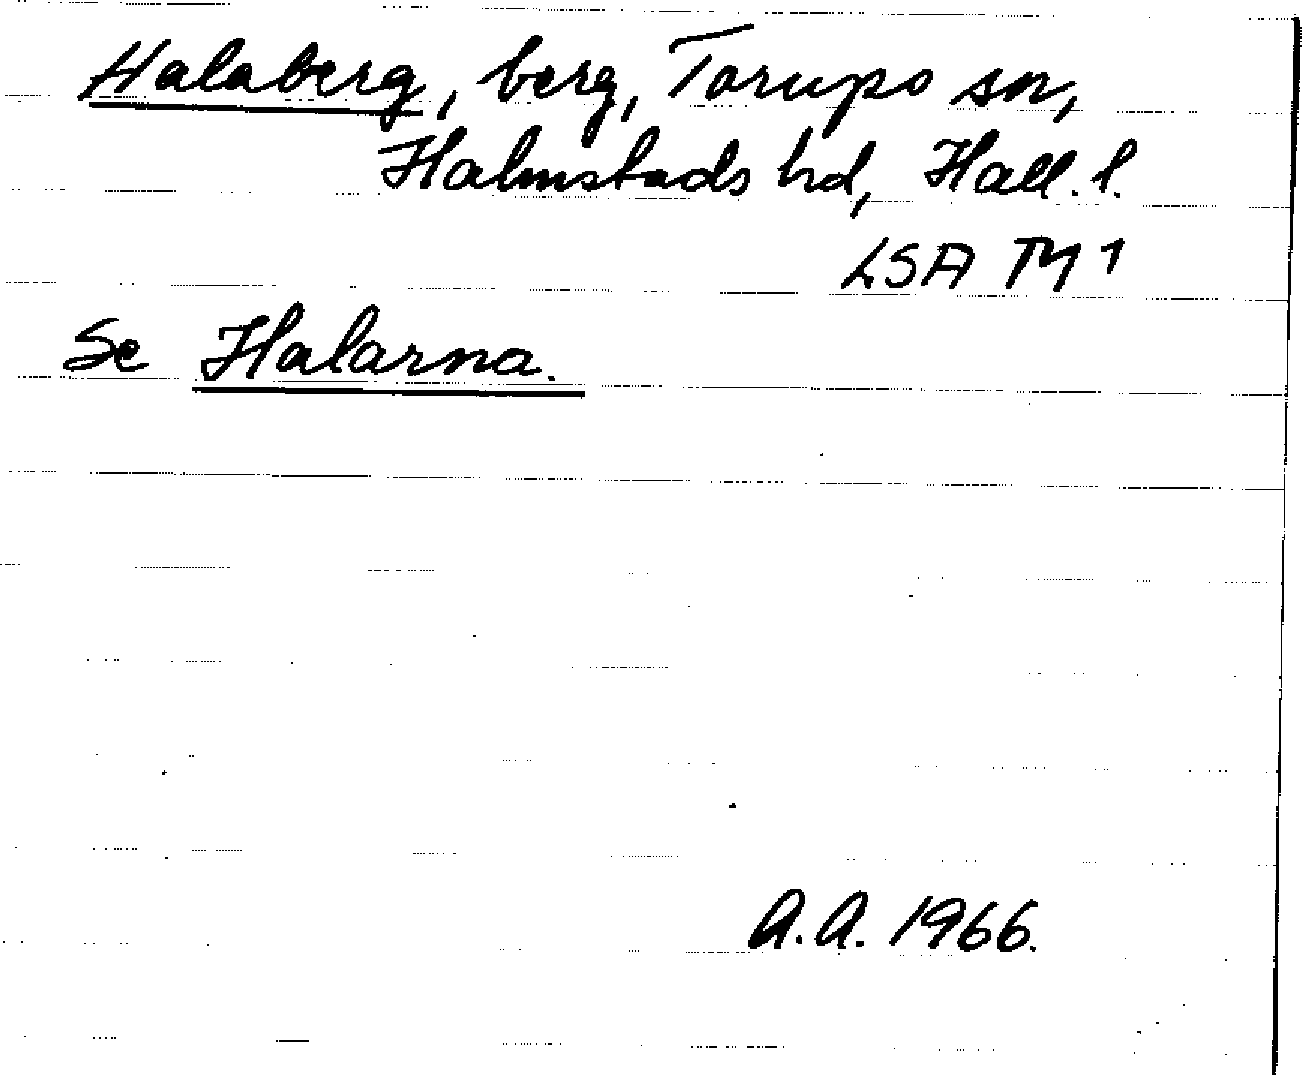 Halaberg, berg, Torups sn,
Halmstads hd, Hall. l.
LSA TM 1
Se Halarna.
A.A. 1966.